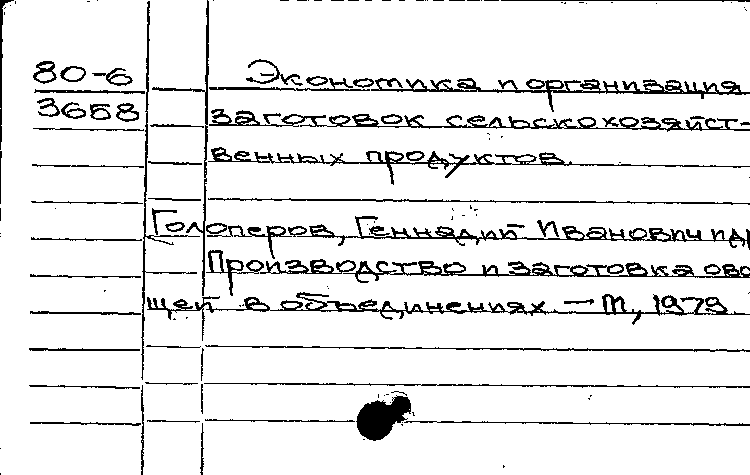 80-6
3658
Экономика и организация
заготовок сельскохозяйст-
венных продуктов.
Голоперов, Геннадий Иванович и др
Производство и заготовка ово
щей в объединениях. — М., 1979.